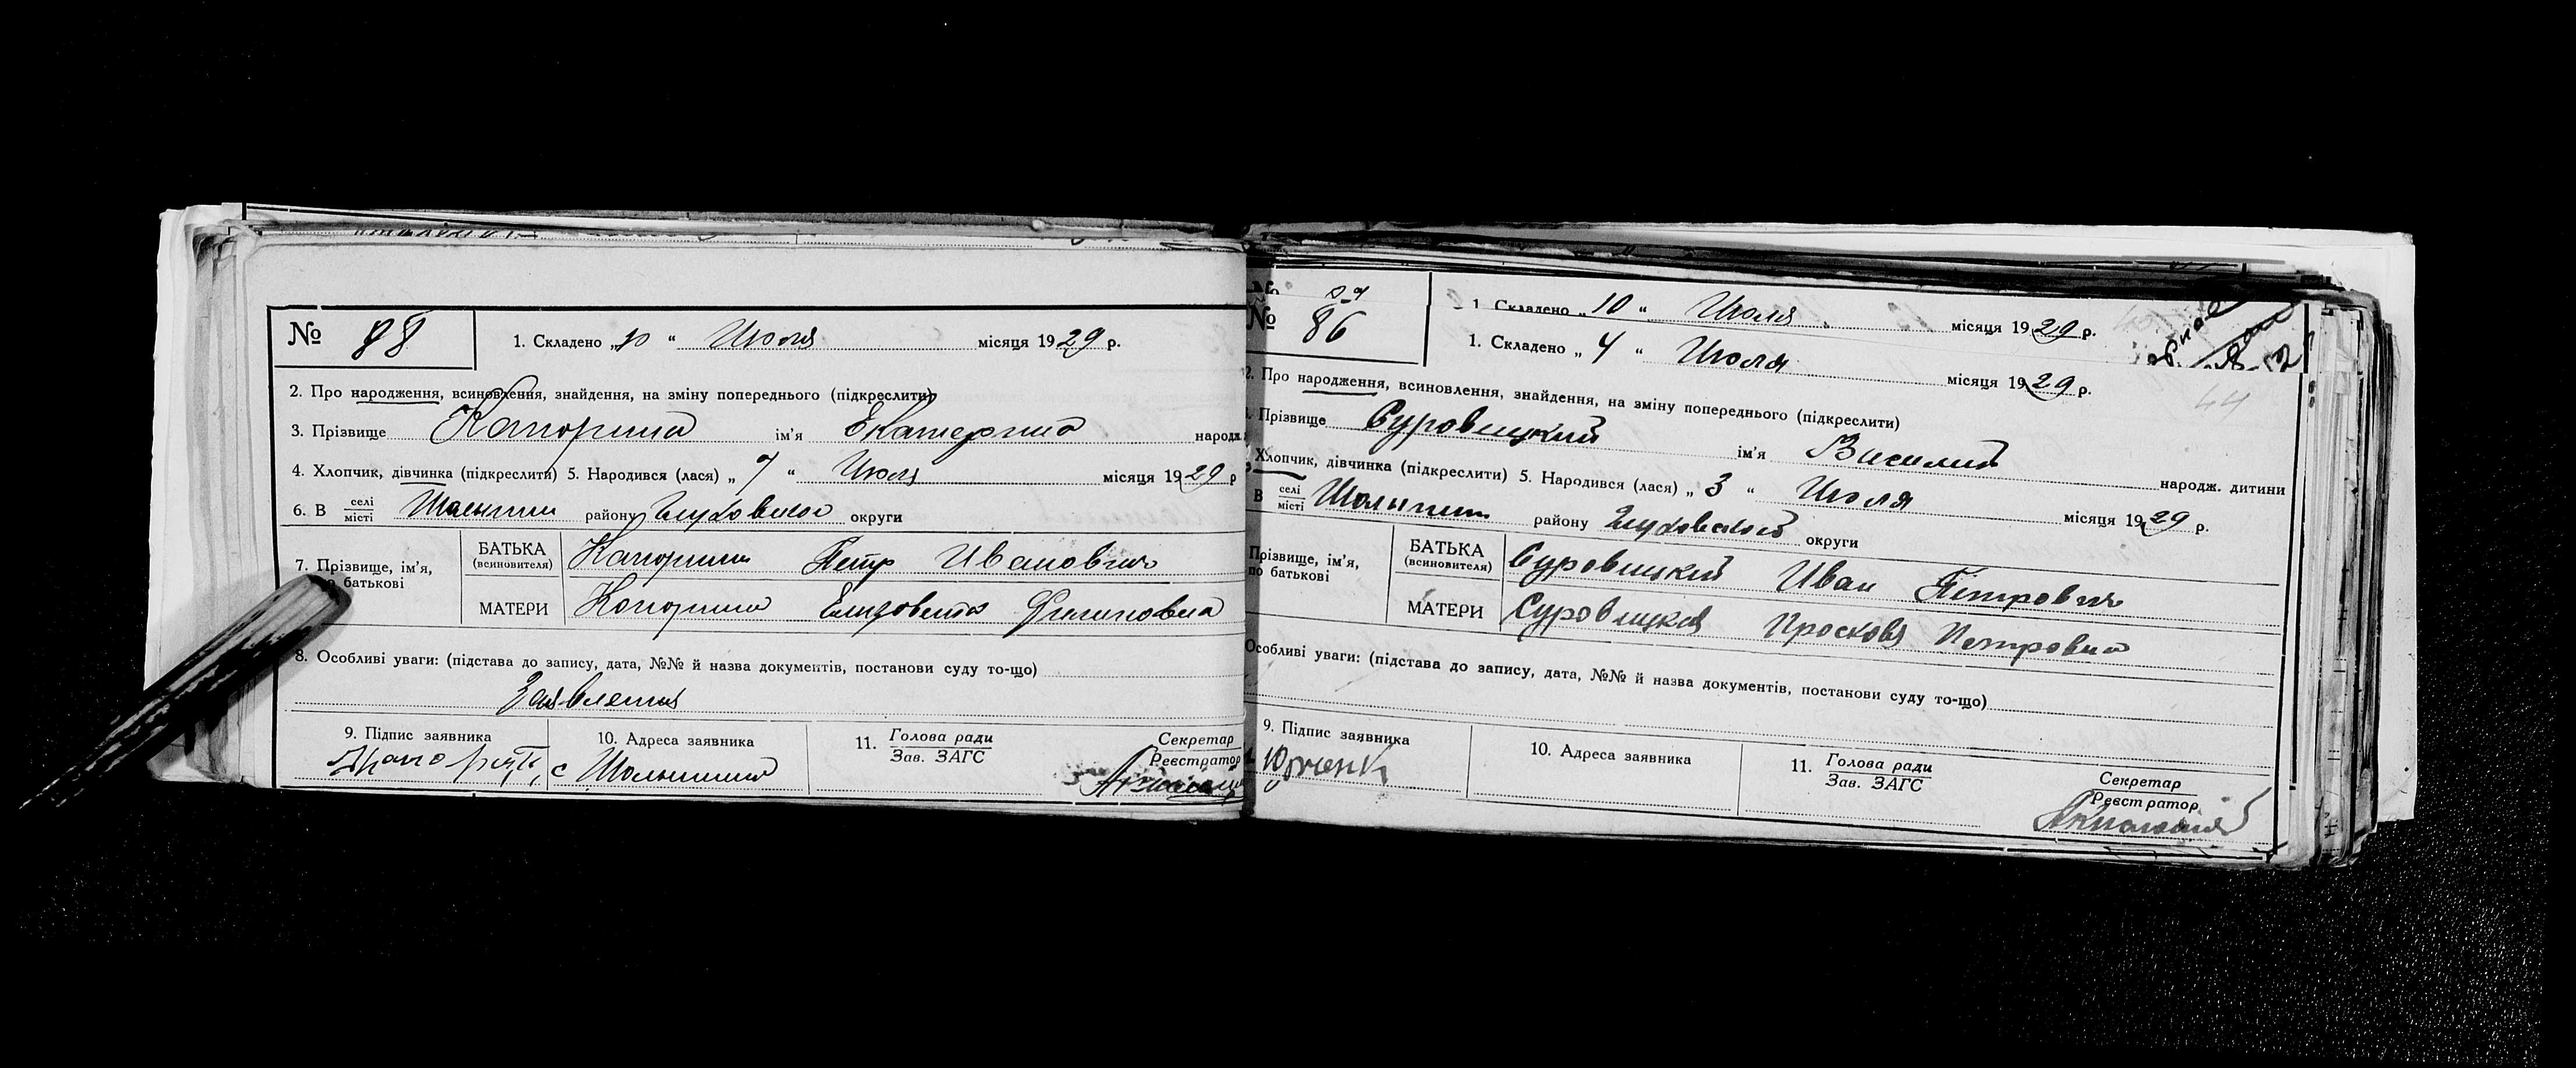 № 88
1. Складено „10 “ Июля місяця 1929 р.
2. Про народження, всиновлення, знайдення, на зміну попереднього (підкреслити)
3. Прізвище Капорина ім'я Екатерина народж.
4. Хлопчик, дівчинка (підкреслити) 5. Народився (лася) „ 7 “ Июля місяця 1929 р
6. В селі/місті району Глуховской округи
7. Прізвище, ім'я, по батькові
БАТЬКА (всиновителя) Капорин Петр Иванович
МАТЕРИ Капорина Елизовета Филиповна
8. Особливі уваги: (підстава до запису, дата, №№ й назва документів, постанови суду то-що)
Заявления
9. Підпис заявника
10. Адреса заявника с
11. Голова ради
Зав. ЗАГС
Секретар
Реєстратор
1. Складено „ 10 “ Июля місяця 1929 р.
№ 86
1. Складено „ 4 “ Июля місяця 1929 р.
44
2. Про народження, всиновлення, знайдення, на зміну попереднього (підкреслити)
Прізвище Суровицкий ім'я Василий народж. дитини
Хлопчик, дівчинка (підкреслити) 5. Народився (лася) „ 3 “ Июля місяця 1929 р.
В селі/місті району Глуховской округи
Прізвище, ім'я, по батькові
БАТЬКА (всиновителя) Суровицкий Иван Петрович
МАТЕРИ Суровицкая Просковя Петровна
Особливі уваги: (підстава до запису, дата, №№ й назва документів, постанови суду то-що)
9. Підпис заявника
10. Адреса заявника
11. Голова ради
Зав. ЗАГС
Секретар
Реєстратор